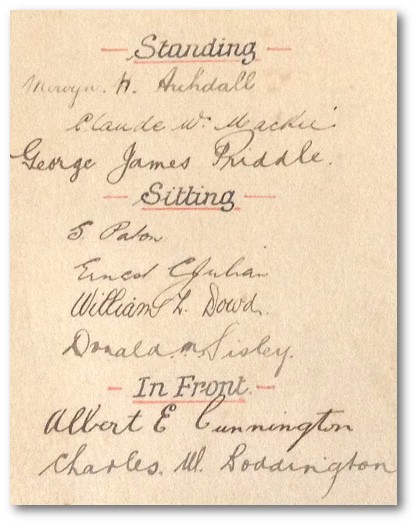 — Standing —
Mervyn. H. Archdall
Claude W. Mackie
George James Priddle.
— Sitting —
S. Paton
Ernest C Julian
William L. Dowd.
Donald M Sisley.
— In Front —
Albert E Cunnington
Charles. W. Boddington